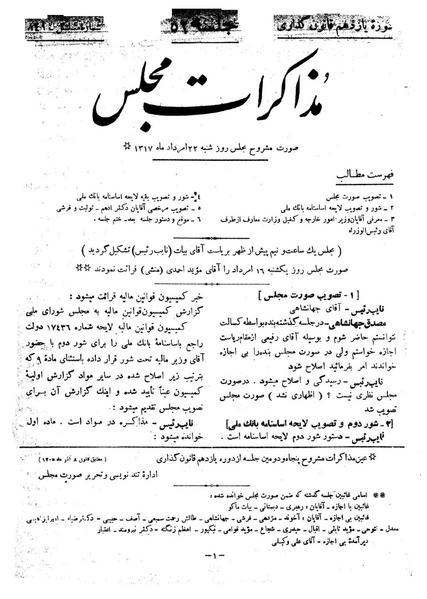 دورهٔ یازدهم قانون گذاری
جلسه
مذاکرات مجلس
صورت مشروح مجلس روز شنبه ۲۲ امرداد ماه ۱۳۱۷
فهرست مطالب
۱ - تصویب صورت مجلس
۲ - شور و تصویب لایحه اساسنامه بانک ملی
۳ - معرفی آقایان وزیر امور خارجه و کفیل وزارت معارف از طرف
آقای رئیس الوزراء
۴ - شور و تصویب بقیه لایحه اساسنامه بانک ملی
۵ - تصویب مرخصی آقایان دکتر ادهم - تولیت و قرشی
۶ - موقع و دستور جلسه بعد - ختم جلسه
( مجلس یک ساعت و نیم پیش از ظهر بریاست آقای بیات (نایب رئیس) تشکیل گردید )
صورت مجلس روز یکشنبه ۱۶ امرداد را آقای مؤید احمدی (منشی) قرائت نمودند **
[ ۱ - تصویب صورت مجلس ]
نایب رئیس - آقای جهانشاهی
مصدق جهانشاهی - در جلسه گذشته بنده بواسطه کسالت
نتوانستم حاضر شوم و بوسیله آقای رفیعی از مقام ریاست
اجازه خواستم ولی در صورت مجلس بنده را بی اجازه
خواندند امر بفرمائید اصلاح شود
نایب رئیس - رسیدگی و اصلاح میشود . در صورت
مجلس نظری نیست ؟ ( اظهاری نشد ) صورت مجلس
تصویب شد
[۲ - شور دوم و تصویب لایحه اساسنامه بانک ملی]
نایب رئیس - دستور شور دوم لایحه اساسنامه است .
خبر کمیسیون قوانین مالیه قرائت میشود :
گزارش کمیسیون قوانین مالیه به مجلس شورای ملی
کمیسیون قوانین مالیه لایحه شماره ۱۷۴۳۶ دولت
راجع باساسنامه بانک ملی را برای شور دوم با حضور
آقای وزیر مالیه تحت شور قرار داده باستثنای مادهٔ ۹ که
بترتیب زیر اصلاح شده در سایر مواد گزارش اولیهٔ
کمیسیون عیناً تأیید شده و اینک گزارش آن برای
تصویب مجلس تقدیم میشود :
نایب رئیس - مذاکره در مواد است . ماده اول
خوانده میشود :
* عین مذاکرات مشروح پنجاه و دومین جلسه از دوره یازدهم قانون گذاری
اداره تند نویسی و تحریر صورت مجلس
** اسامی غائبین جلسه گذشته که ضمن صورت مجلس خوانده شده :
غائبین با اجازه - آقایان : رهبری - دبستانی - بیات ماکو
دیرآمده بی اجازه - آقای علی وکیلی
- ۱ -